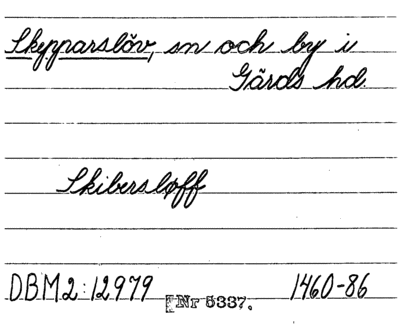 Skepparslöv, sn och by i
Gärds hd.
Skibersløff
DBM2:12979 Nr 5337. 1460-86